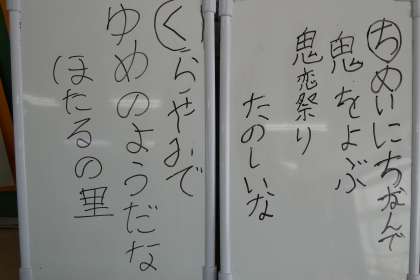 ちめいにちなんで
鬼をよぶ
鬼恋祭り
たのしいな
くらやみで
ゆめのようだな
ほたるの里